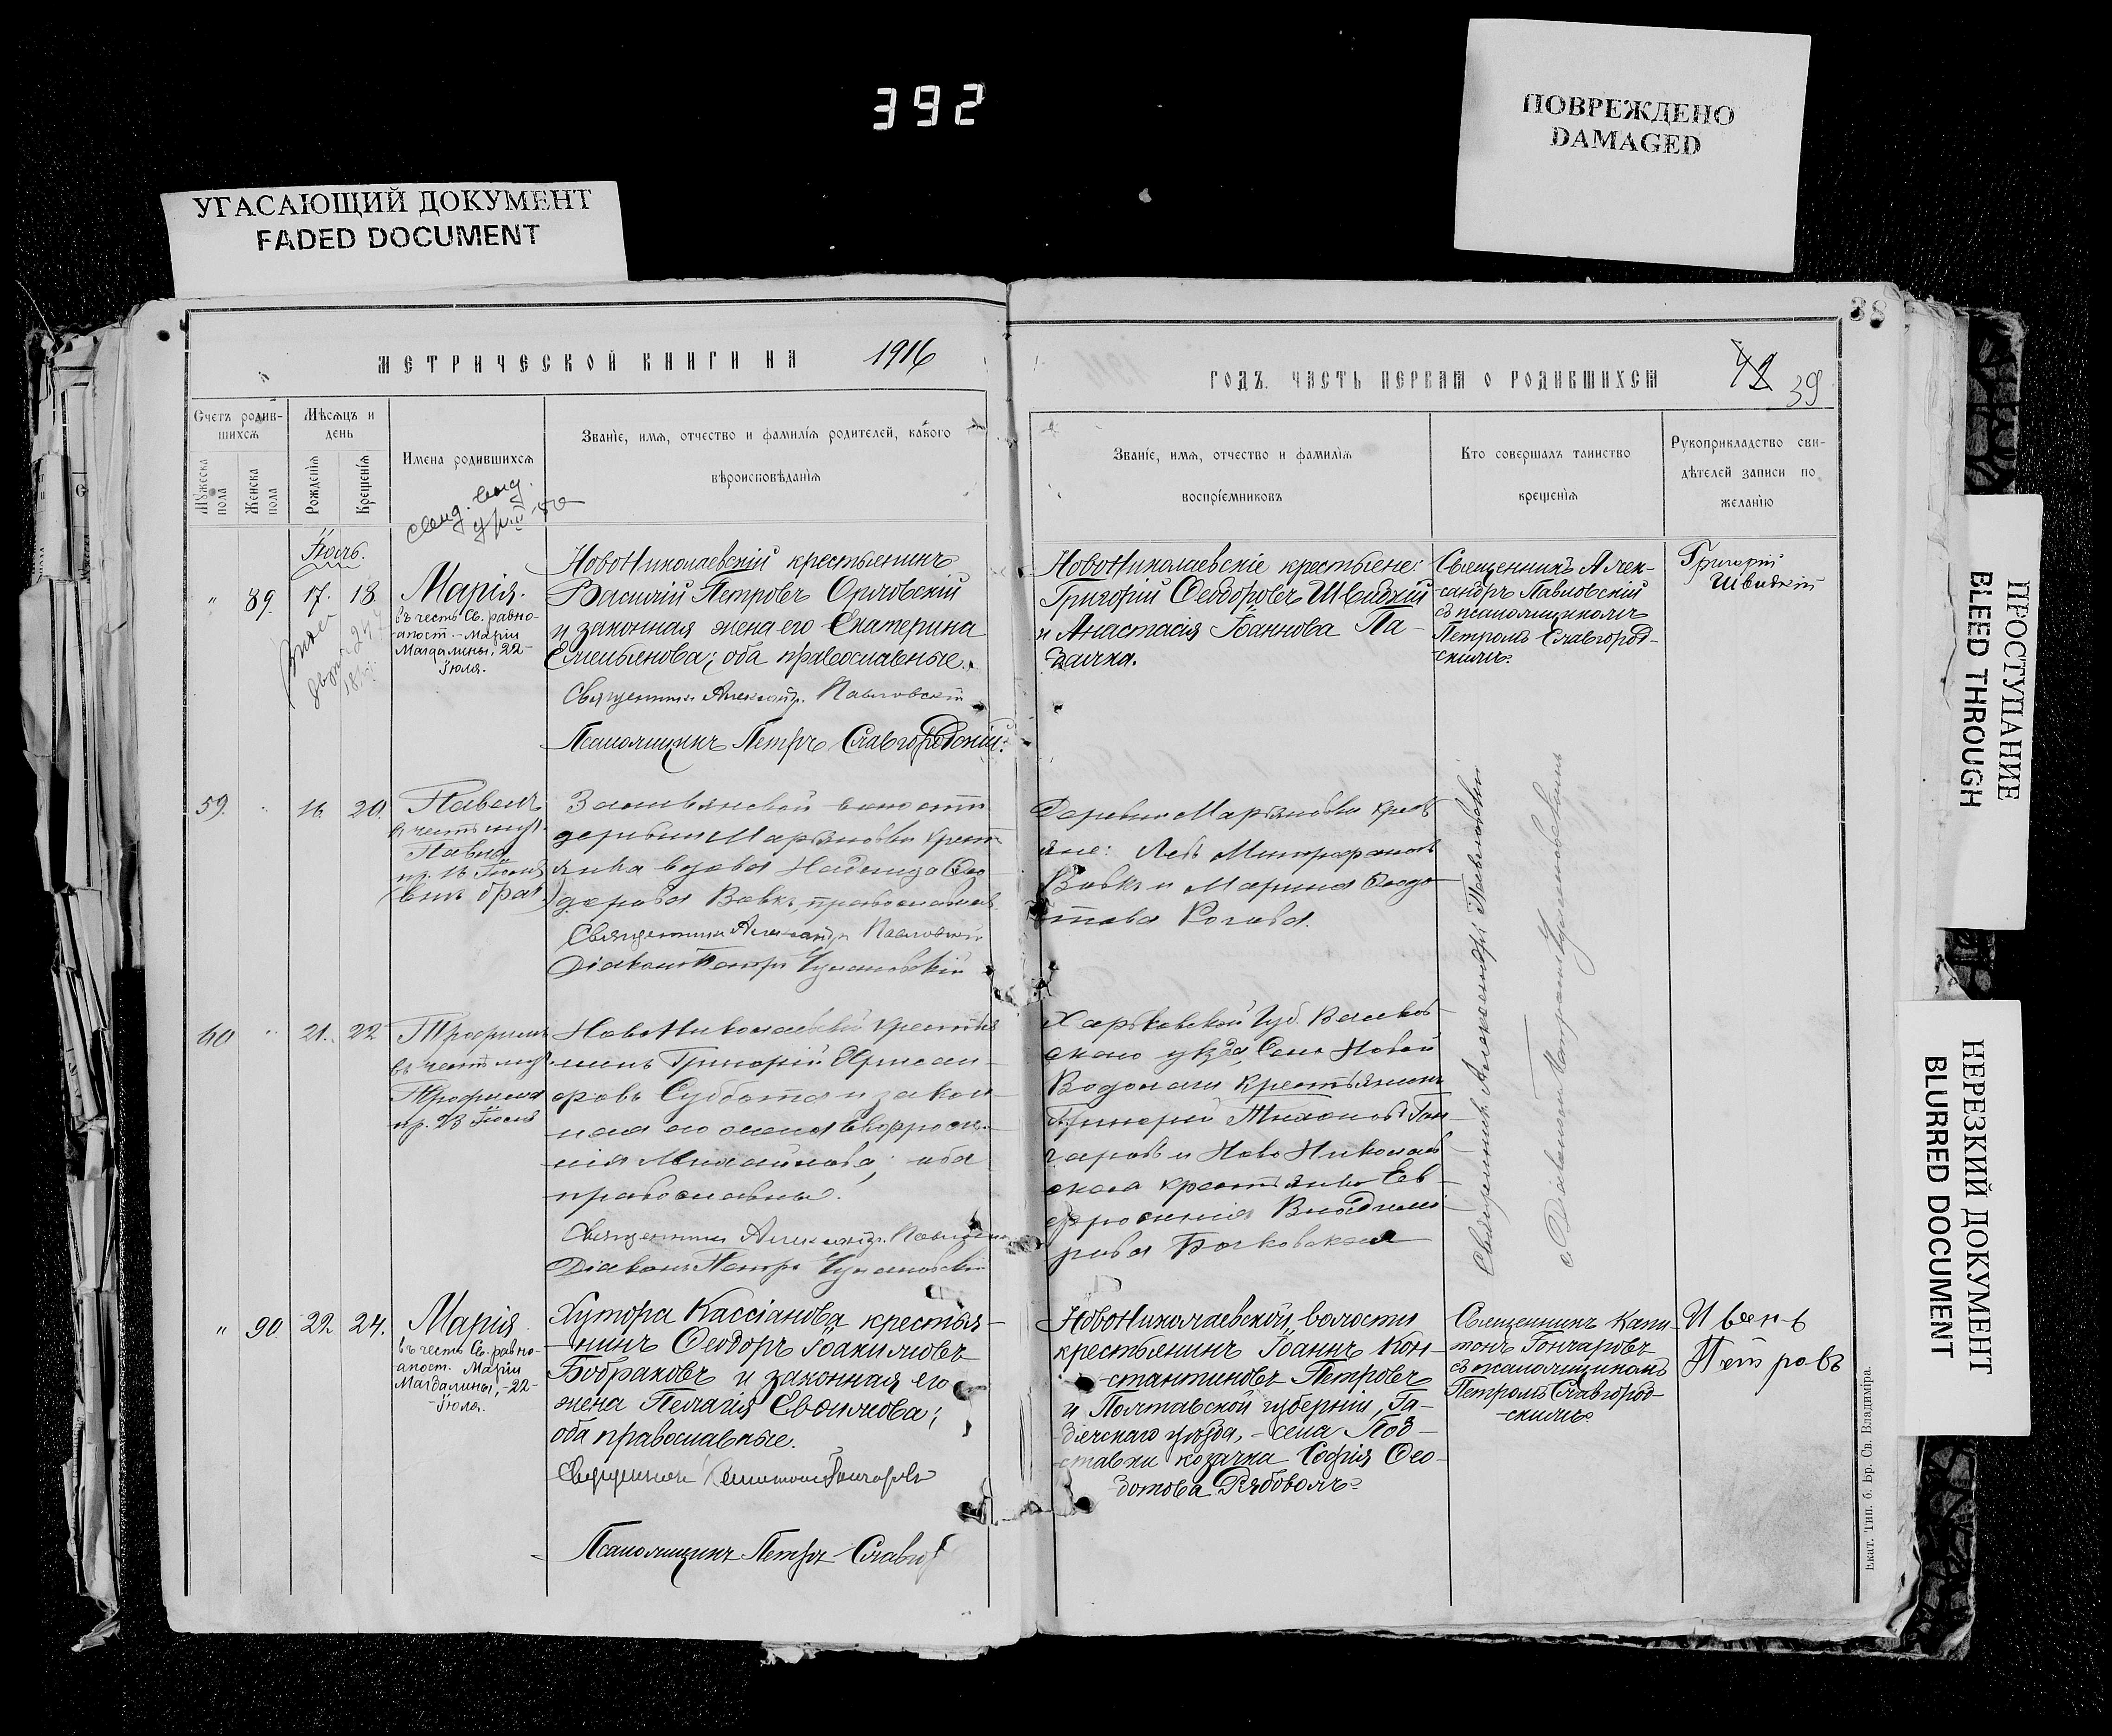 392
ПОВРЕЖДЕНО
DAMAGED
УГАСАЮЩИЙ ДОКУМЕНТ
FADED DOCUMENT
38
МЕТРИЧЕСКОЙ КНИГИ НА 1916
ГОДЪ. ЧАСТЬ ПЕРВАЯ О РОДИВШИХСЯ
42 39
Счетъ родив-
шихся
Мѣсяцъ и
день
Мужеска
пола
Женска
пола
Рожденія
Крещенія
Имена родившихся
Званіе, имя, отчество и фамилія родителей, какого
вѣроисповѣданія
Званіе, имя, отчество и фамилія
воспріемниковъ
Кто совершалъ таинство
крещенія
Рукоприкладство сви-
дѣтелей записи по
желанію
Іюль.
" 89. 17. 18
Марія.
въ честь Св. равно-
апост. Маріи
Магдалины, 22-
Іюля.
НовоНиколаевскій крестьянинъ
Василій Петровъ Орловскій
и законная жена его Екатерина
Емельянова; оба православные.
Священникъ Александр. Павловскій
Псаломщикъ Петръ Славгородскій.
НовоНиколаевскіе крестьяне:
Григорій Ѳеодоровъ Швидкій
и Анастасія Іоаннова Па-
Священникъ Алек-
сандръ Павловскій
съ псаломщикомъ
Петромъ Славгород-
скимъ.
Григорій
Швидкій
59. " 16. 20.
Павелъ
в честь муч.
Павла
пр. 16 Іюля
(внѣ брач.)
волости
деревни Марьяновки крест
янка вдова Надежда Ѳео
дорова Вовкъ, православная
Священникъ Александр Павловскій
Діаконъ Петръ
Деревни Марьяновки крест
яне: Левъ Митрофановъ
Вовкъ и Марина Ѳеодо
това
60 " 21. 22
Трофимъ
въ честь муч.
Трофима
пр. 23 Іюля
НовоНиколаевскій крестья
нинъ Григорій Хрисан-
фовъ Суббота и закон-
ная его жена Евфроси-
нія Михайлова; оба
православны.
Священникъ Александр. Павловскій
Діаконъ Петръ
Харьковской Губ. Валков-
скаго уѣзда, Села Новой
Водолаги крестьянинъ
Григорій Тихоновъ Гон-
чаровъ и НовоНиколаев
ская крестьянка Ев-
фросинія Владими-
рова
Священникъ Александръ Павловскій
с. Діакономъ Петромъ
" 90 22. 24.
Марія
въ честь Св. равно-
апост. Маріи
Магдалины, 22-
-Іюля.
Хутора Кассіанова крестья-
нинъ Ѳеодоръ Іоакимовъ
Бобраковъ и законная его
жена Пелагія Евѳимова;
оба православные.
Священникъ Капитонъ Гончаровъ
Псаломщикъ Петръ Славгор
НовоНиколаевской волости
крестьянинъ Іоаннъ Кон-
стантиновъ Петровъ
и Полтавской губерніи, Га-
дячскаго уѣзда, - села Под-
ставки козачка Софія Ѳео-
дотова Рябоволъ
Священникъ Капи-
тонъ Гончаровъ
съ псаломщикомъ
Петромъ Славгород-
-скимъ
Иванъ
Петровъ
Екат. Тип. б. Бр. Св. Владиміра.
ПРОСТУПАНИЕ
BLEED THROUGH
НЕРЕЗКИЙ ДОКУМЕНТ
BLURRED DOCUMENT